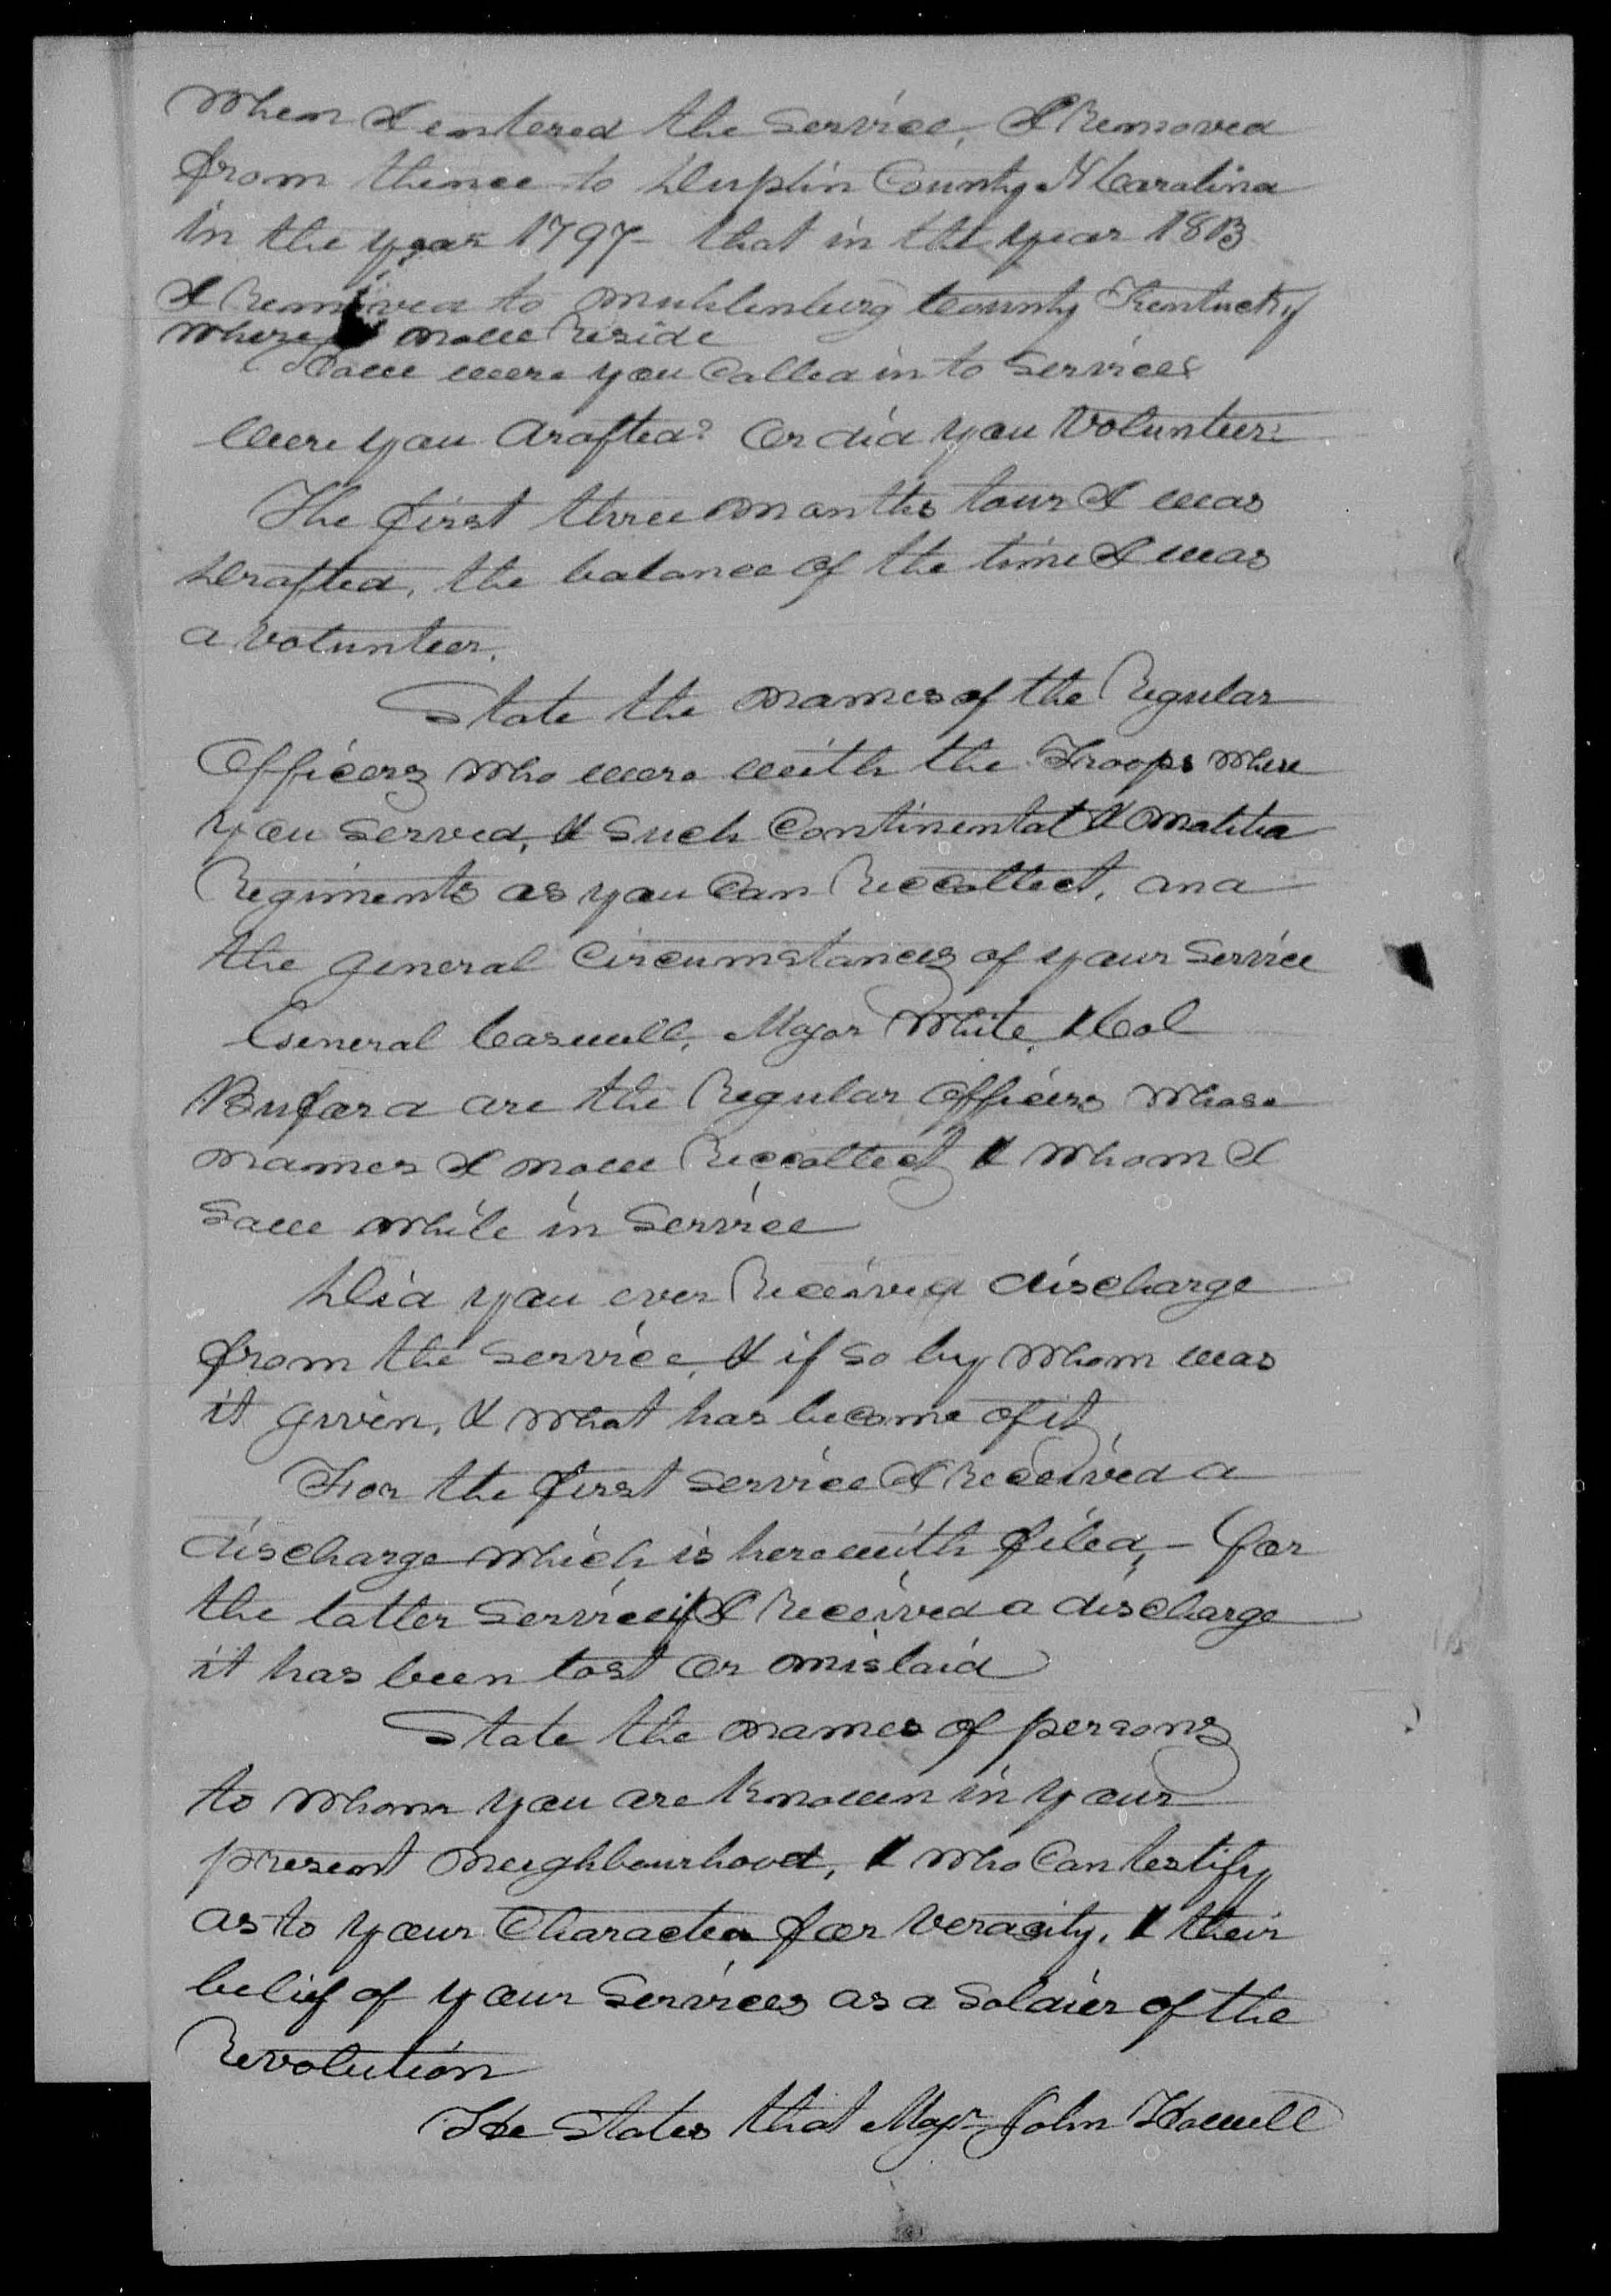 When I entered the Service, I Removed
from thence to Duplin County N Carolina
in the year 1797- that in the year 1813
I Removed to Muhlenburg County Kentucky
where I now Reside
How were you Called into Service &
were you drafted? Or did you Volunteer:
The first three months tour I was
Drafted, the balance of the time I was
a Volunteer.
State the names of the Regular
Officers who were with the Troops where
you served, & such Continental & Malitia
Regiments as you Can Reccollect, and
the general Circumstances of your Service
General Caswell, Major White, & Col
Buford are the Regular Officers whose
names I now Reccollect & whom I
saw while in Service
Did you ever Received discharge
from the service, & if so by whom was
it given, & what has become of it
For the first service I Received a
discharge which is herewith filed, - for
the latter service if I Received a discharge
it has been lost or mislaid
State the names of persons
to whom you are known in your
present neighbourhood, & who Can testify
as to your Character for veracity, & their
belief of your Services as a Soldier of the
Revolution
He States that Majr John Howell